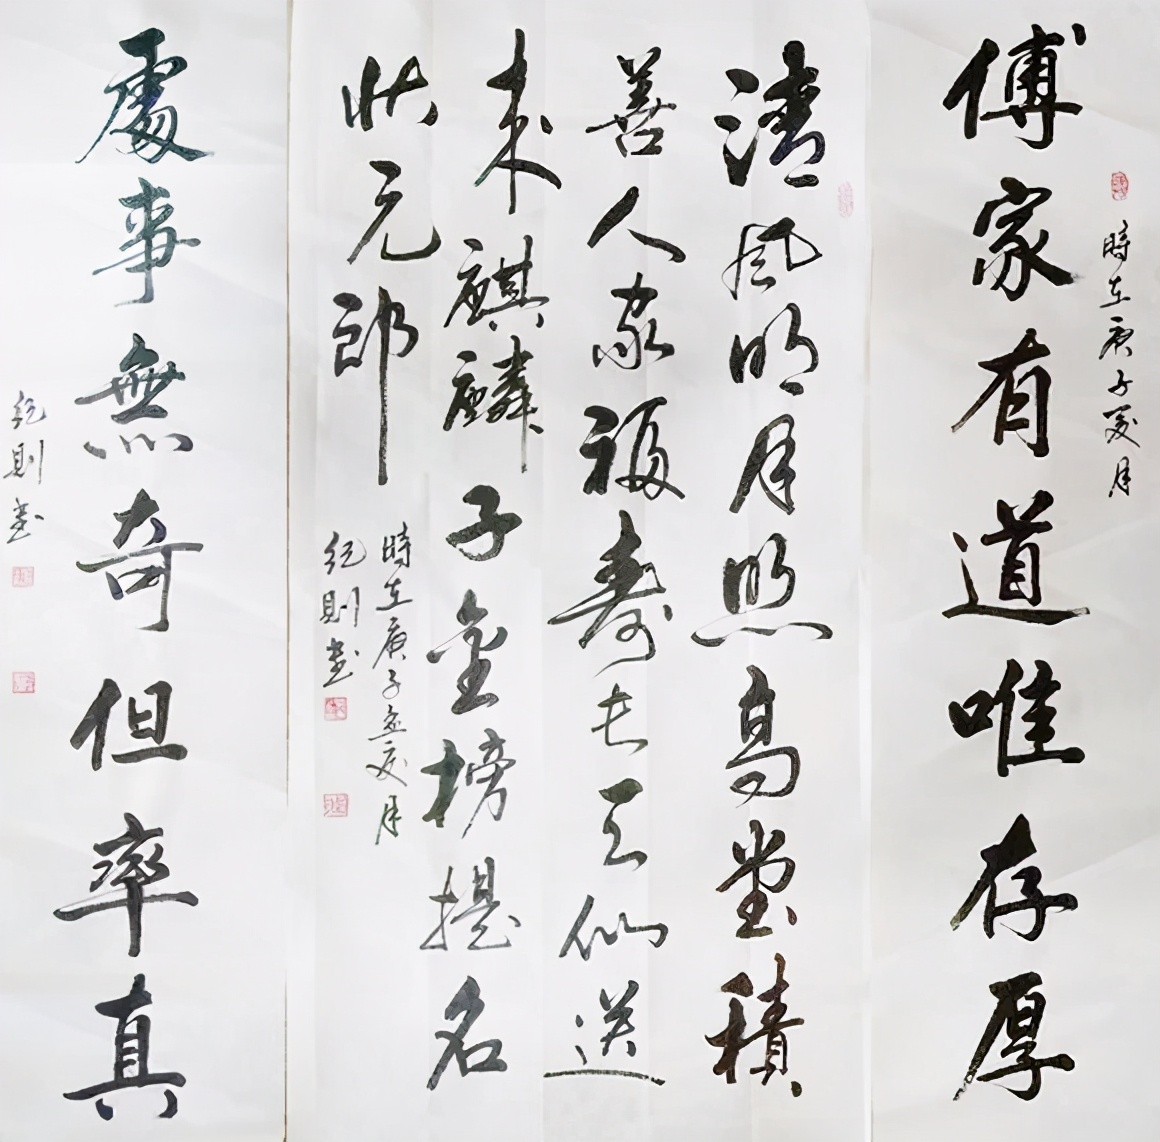 時在庚子夏月
傅家有道唯存厚
清風明月照高堂積
善人家福壽長天仙送
來麒麟子金榜提名
状元郎
時在庚子孟夏月
紀則書
處事無奇但率真
紀則書